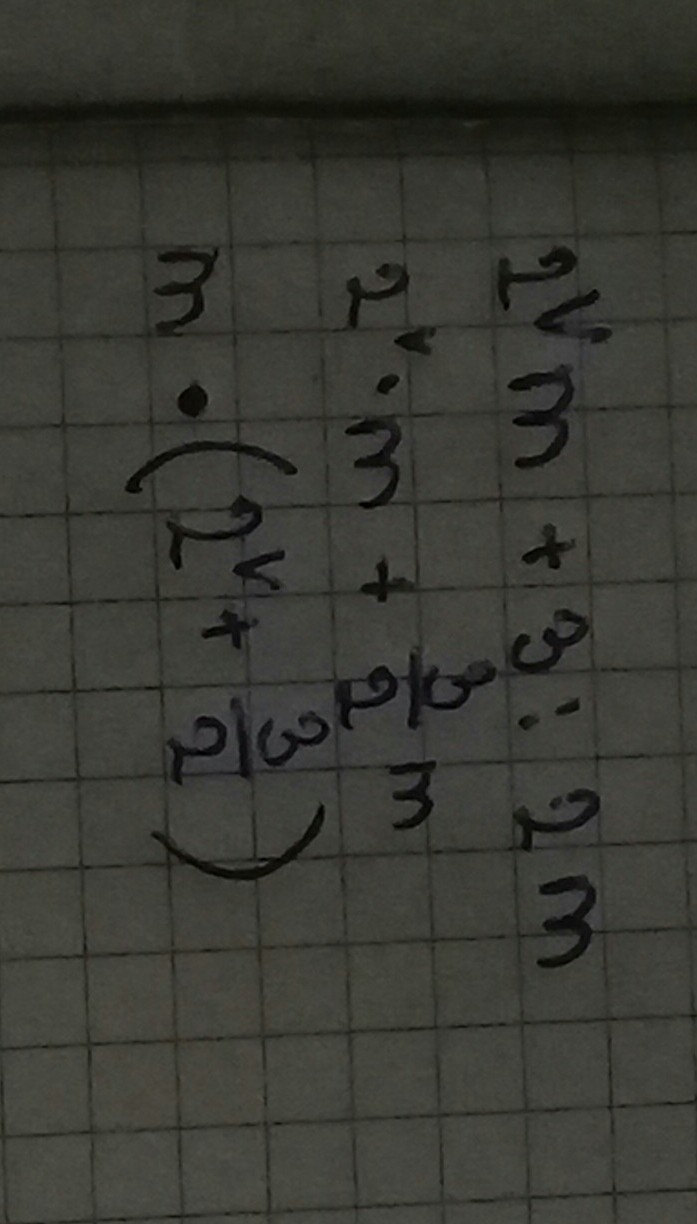 2^v m + 3 : 2 m
2^v · m + 3/2 m
m · (2^v + 3/2)